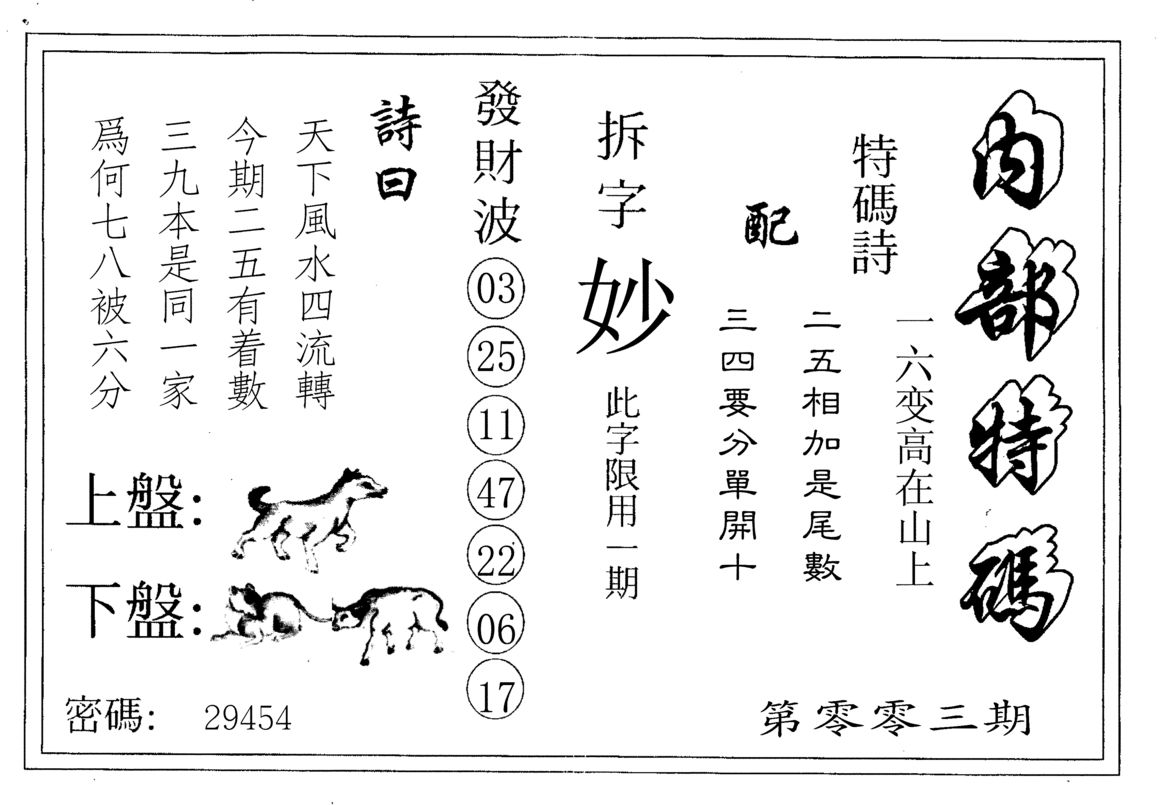 内部特碼
特碼詩
一六变高在山上
二五相加是尾數
配
三四要分單開十
拆字
妙
此字限用一期
發財波
03
25
11
47
22
06
17
詩曰
天下風水四流轉
今期二五有着數
三九本是同一家
爲何七八被六分
上盤：
下盤：
密碼： 29454
第零零三期